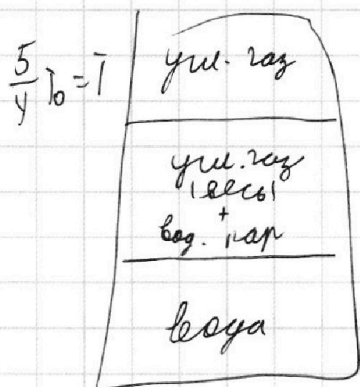 5/4 T₀ = T
угл. газ
угл. газ
(весь)
+
вод. пар
вода